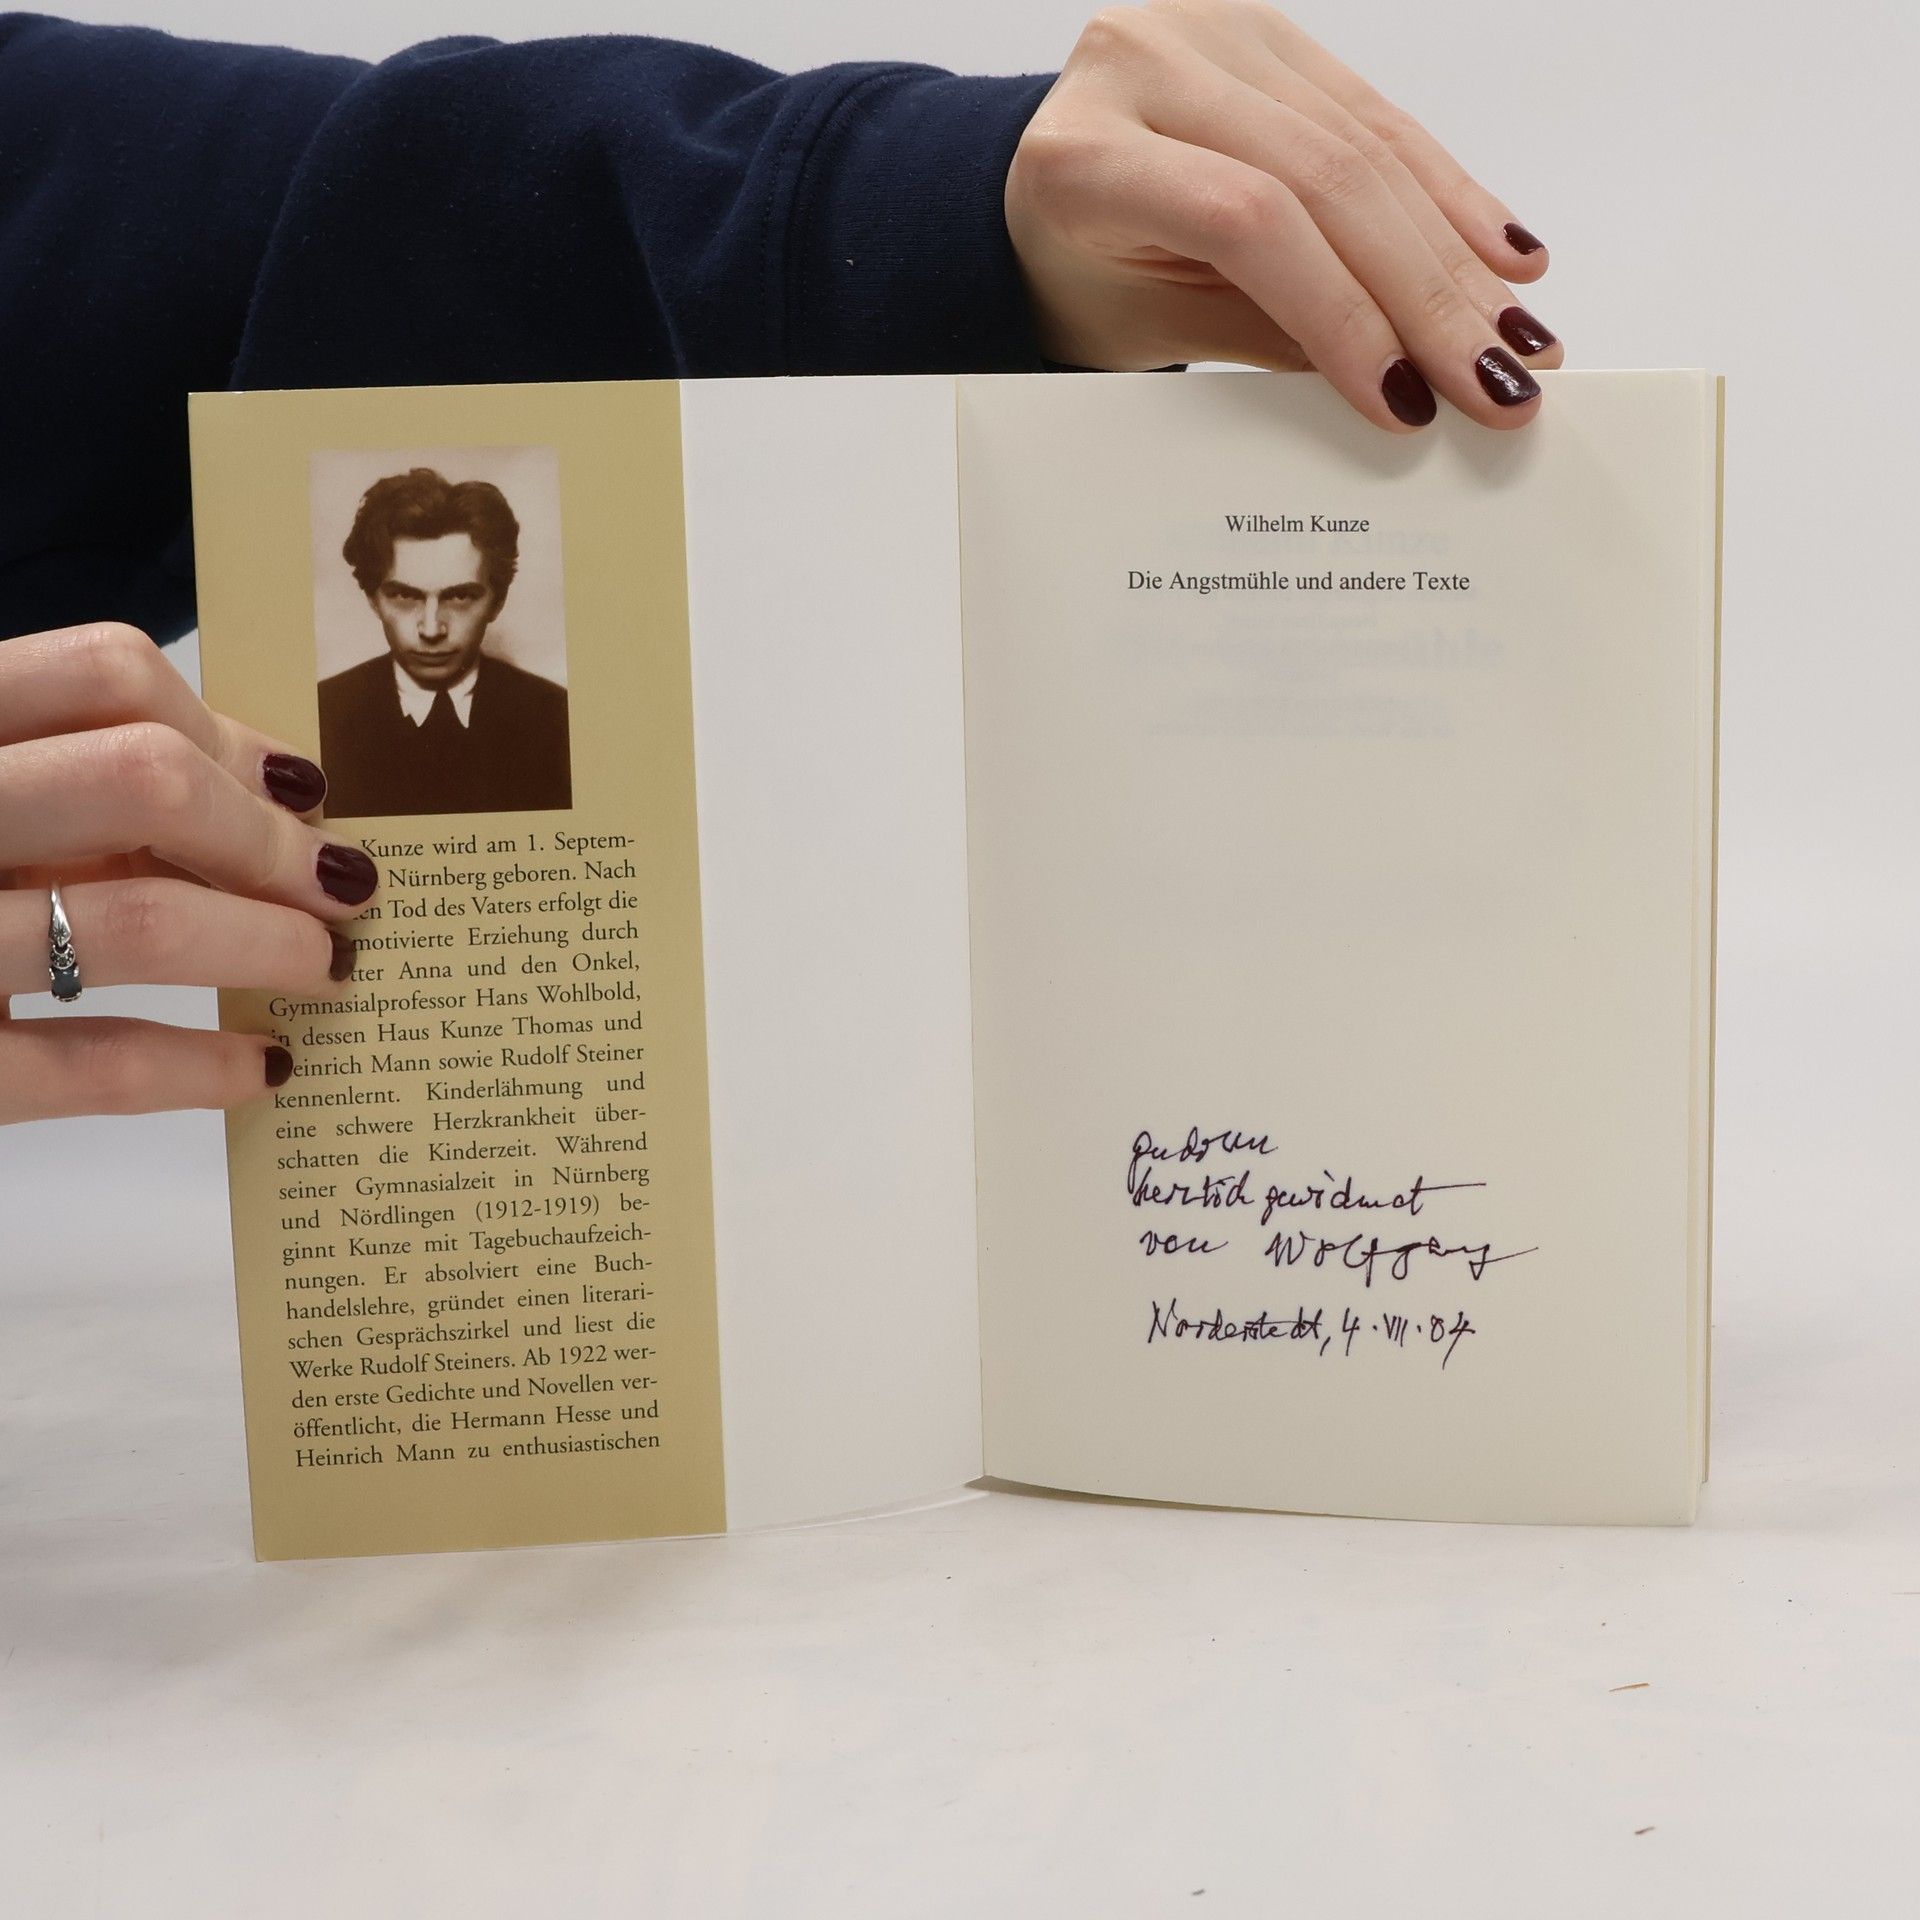 Kunze wird am 1. Septem-
Nürnberg geboren. Nach
Tod des Vaters erfolgt die
motivierte Erziehung durch
Anna und den Onkel,
Gymnasialprofessor Hans Wohlbold,
in dessen Haus Kunze Thomas und
Heinrich Mann sowie Rudolf Steiner
kennenlernt. Kinderlähmung und
eine schwere Herzkrankheit über-
schatten die Kinderzeit. Während
seiner Gymnasialzeit in Nürnberg
und Nördlingen (1912-1919) be-
ginnt Kunze mit Tagebuchaufzeich-
nungen. Er absolviert eine Buch-
handelslehre, gründet einen literari-
schen Gesprächszirkel und liest die
Werke Rudolf Steiners. Ab 1922 wer-
den erste Gedichte und Novellen ver-
öffentlicht, die Hermann Hesse und
Heinrich Mann zu enthusiastischen
Wilhelm Kunze
Die Angstmühle und andere Texte
Gudrun
herzlich gewidmet
von Wolfgang
Norderstedt, 4.VII.04